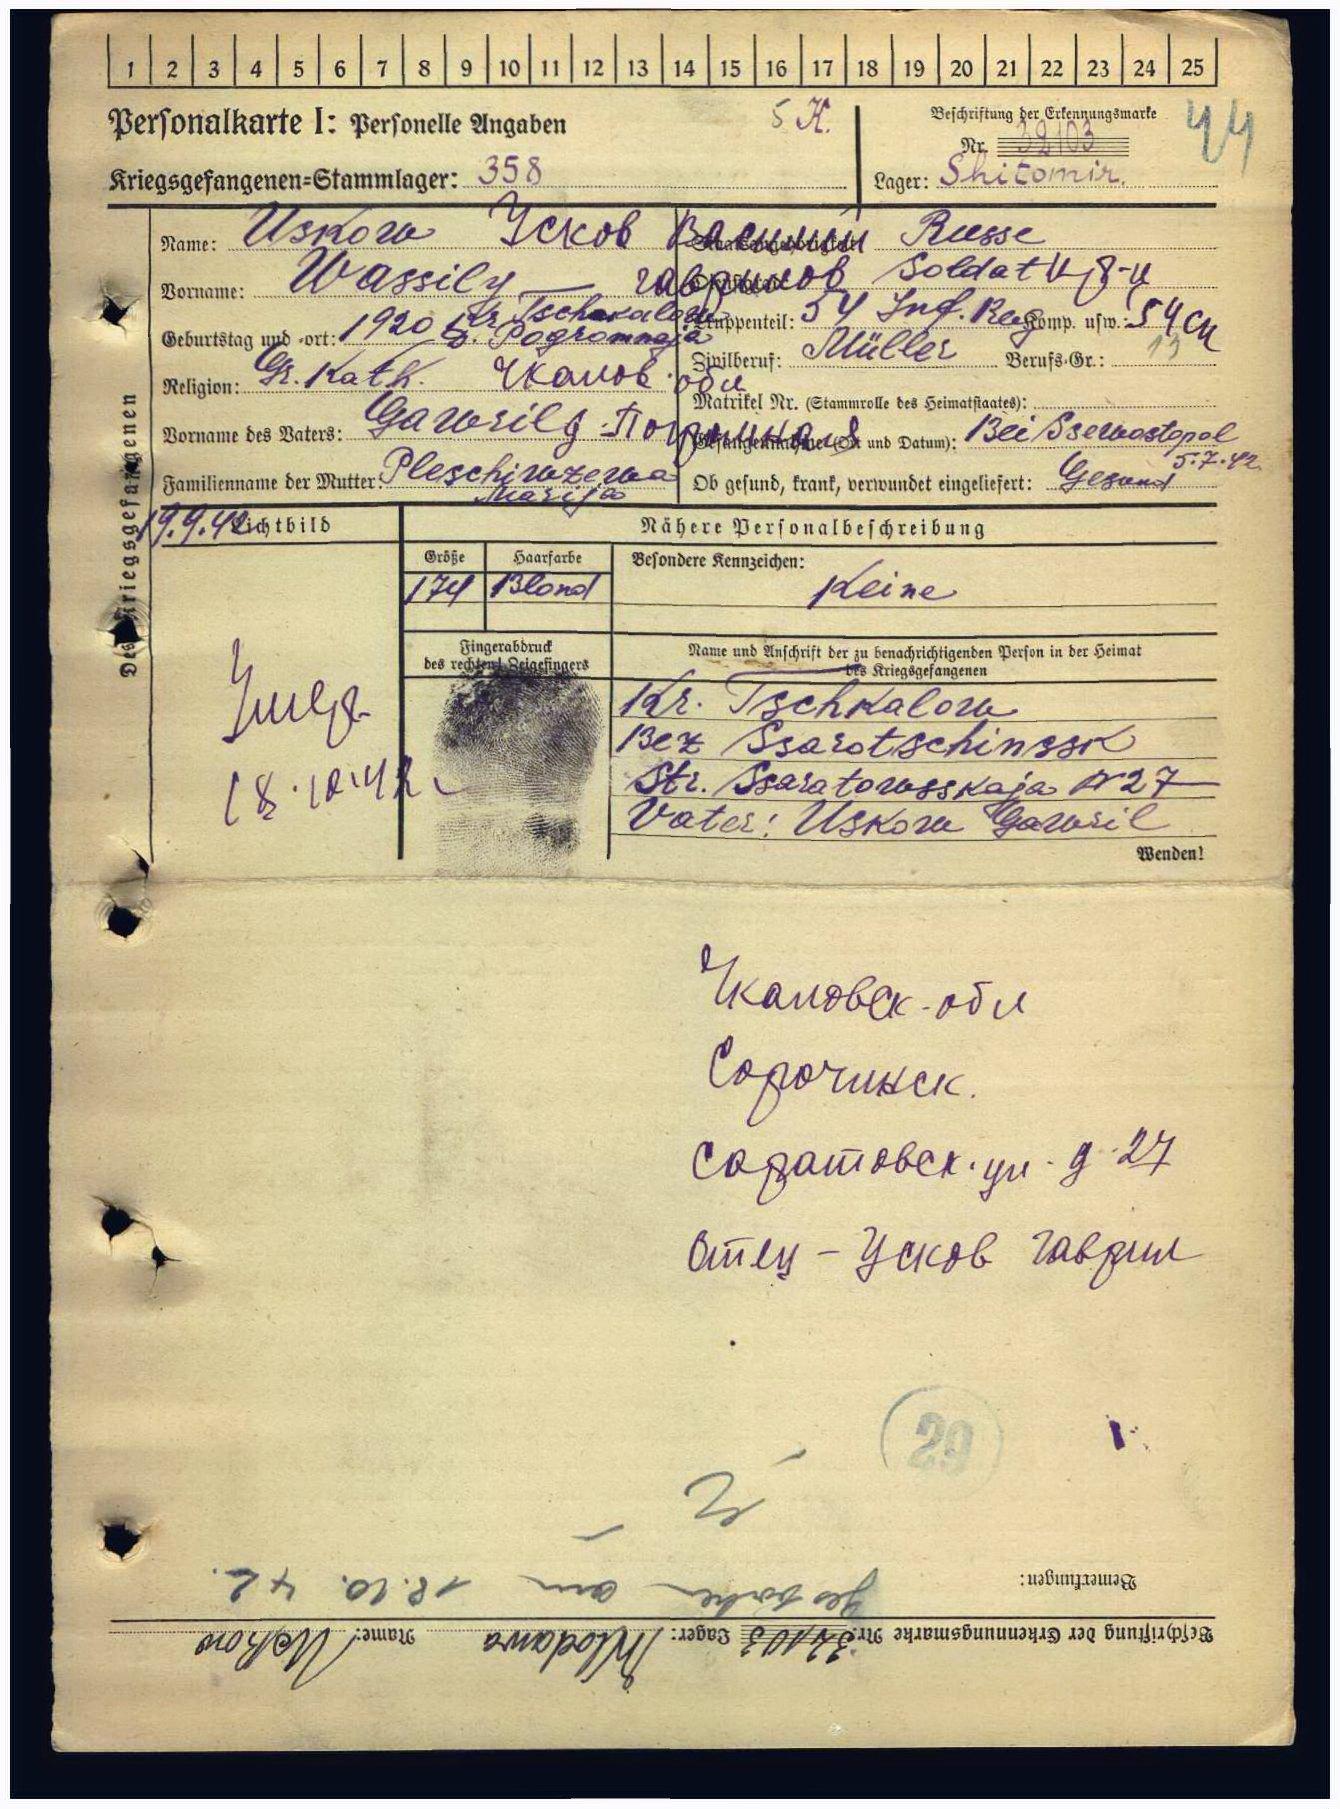 1 2 3 4 5 6 7 8 9 10 11 12 13 14 15 16 17 18 19 20 21 22 23 24 25
Personalkarte I: Personelle Angaben
5 K.
Beschriftung der Erkennungsmarke
44
Nr. 32103
Kriegsgefangenen=Stammlager: 358
Lager: Shitomir.
Des Kriegsgefangenen
Name: Uskow Усков Василий
Russe
Vorname: Wassily Гаврилов
Soldat
Geburtstag und =ort: 1920 Kr. Tschkalow
Pogromnaja
Truppenteil: 54 Inf. Reg Komp. usw.: 54 СП
Zivilberuf: Müller Berufs=Gr.: 13
Religion: Gr. Kath. Чкалов. обл
Matrikel Nr. (Stammrolle des Heimatstaates):
Vorname des Vaters: Gawrily
Gefangennahme (Ort und Datum): Bei Ssewostopol
5.7.42
Familienname der Mutter: Pleschiwzewa
Marija
Ob gesund, krank, verwundet eingeliefert: Gesund
19.9.42 Lichtbild
Nähere Personalbeschreibung
Größe Haarfarbe Besondere Kennzeichen:
174 Blond Keine
Fingerabdruck
des rechten! Zeigefingers
Name und Anschrift der zu benachrichtigenden Person in der Heimat
des Kriegsgefangenen
Kr. Tschkalow
Bez Ssarotschinssk
Str. Ssaratowsskaja N 27
Vater: Uskow Gawril
Умер
18.10.42
Wenden!
Чкаловск-обл
Сорочинск.
Саратовск. ул. д. 27
Отец – Усков Гаврил
29
Bemerkungen:
gestorben am 18.10.42.
Beschriftung der Erkennungsmarke Nr. 32103 Lager: Wlodawa Name: Uskow